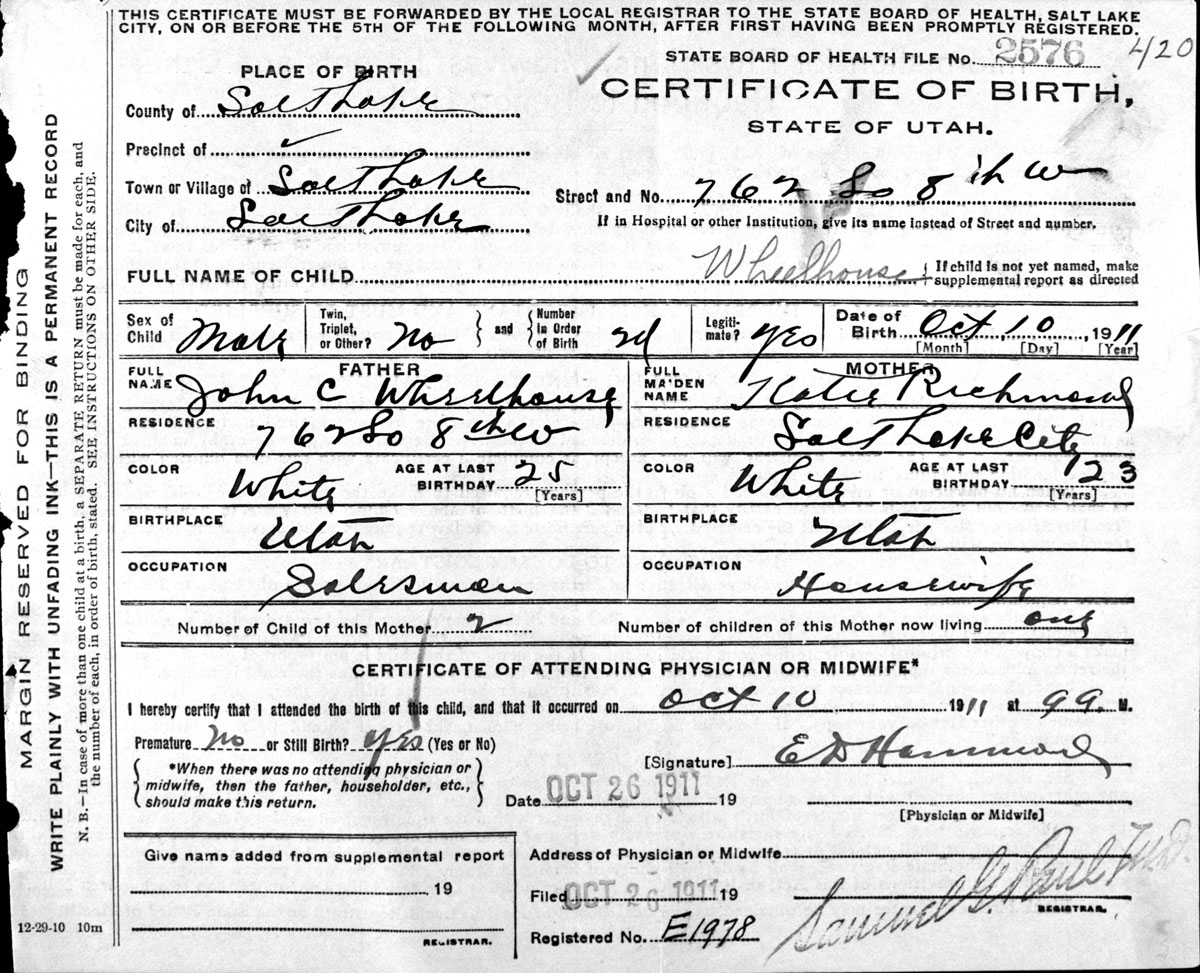 THIS CERTIFICATE MUST BE FORWARDED BY THE LOCAL REGISTRAR TO THE STATE BOARD OF HEALTH, SALT LAKE
CITY, ON OR BEFORE THE 5TH OF THE FOLLOWING MONTH, AFTER FIRST HAVING BEEN PROMPTLY REGISTERED.
STATE BOARD OF HEALTH FILE No. 2576 4/20
PLACE OF BIRTH
CERTIFICATE OF BIRTH,
STATE OF UTAH.
County of Salt Lake
Precinct of
Town or Village of Salt Lake
Street and No. 762 So 8th W
City of Salt Lake
If in Hospital or other Institution, give its name instead of Street and number.
FULL NAME OF CHILD Wheelhouse { If child is not yet named, make
supplemental report as directed
Sex of Child Male
Twin, Triplet, or Other? No } and { Number in Order of Birth 2d
Legiti-mate? Yes
Date of Birth Oct, 10, 1911
[Month] [Day] [Year]
FATHER
FULL NAME John C Wheelhouse
RESIDENCE 762 So 8th W
COLOR White AGE AT LAST BIRTHDAY 25
[Years]
BIRTHPLACE Utah
OCCUPATION Salesman
MOTHER
FULL MAIDEN NAME Katie Richmond
RESIDENCE Salt Lake City
COLOR White AGE AT LAST BIRTHDAY 23
[Years]
BIRTHPLACE Utah
OCCUPATION Housewife
Number of Child of this Mother 2 Number of children of this Mother now living one
CERTIFICATE OF ATTENDING PHYSICIAN OR MIDWIFE*
I hereby certify that I attended the birth of this child, and that it occurred on Oct 10 1911 at M.
Premature No or Still Birth? yes (Yes or No)
{ *When there was no attending physician or
midwife, then the father, householder, etc.,
should make this return. }
[Signature] E D Hammond
Date OCT 26 1911 19
[Physician or Midwife]
Give name added from supplemental report
19
REGISTRAR.
Address of Physician or Midwife
Filed OCT 26 1911 19
Samuel G. Paul M.D.
REGISTRAR.
Registered No. E1978
12-29-10 10m
MARGIN RESERVED FOR BINDING
WRITE PLAINLY WITH UNFADING INK—THIS IS A PERMANENT RECORD
N. B.—In case of more than one child at a birth, a SEPARATE RETURN must be made for each, and
the number of each, in order of birth, stated. SEE INSTRUCTIONS ON OTHER SIDE.